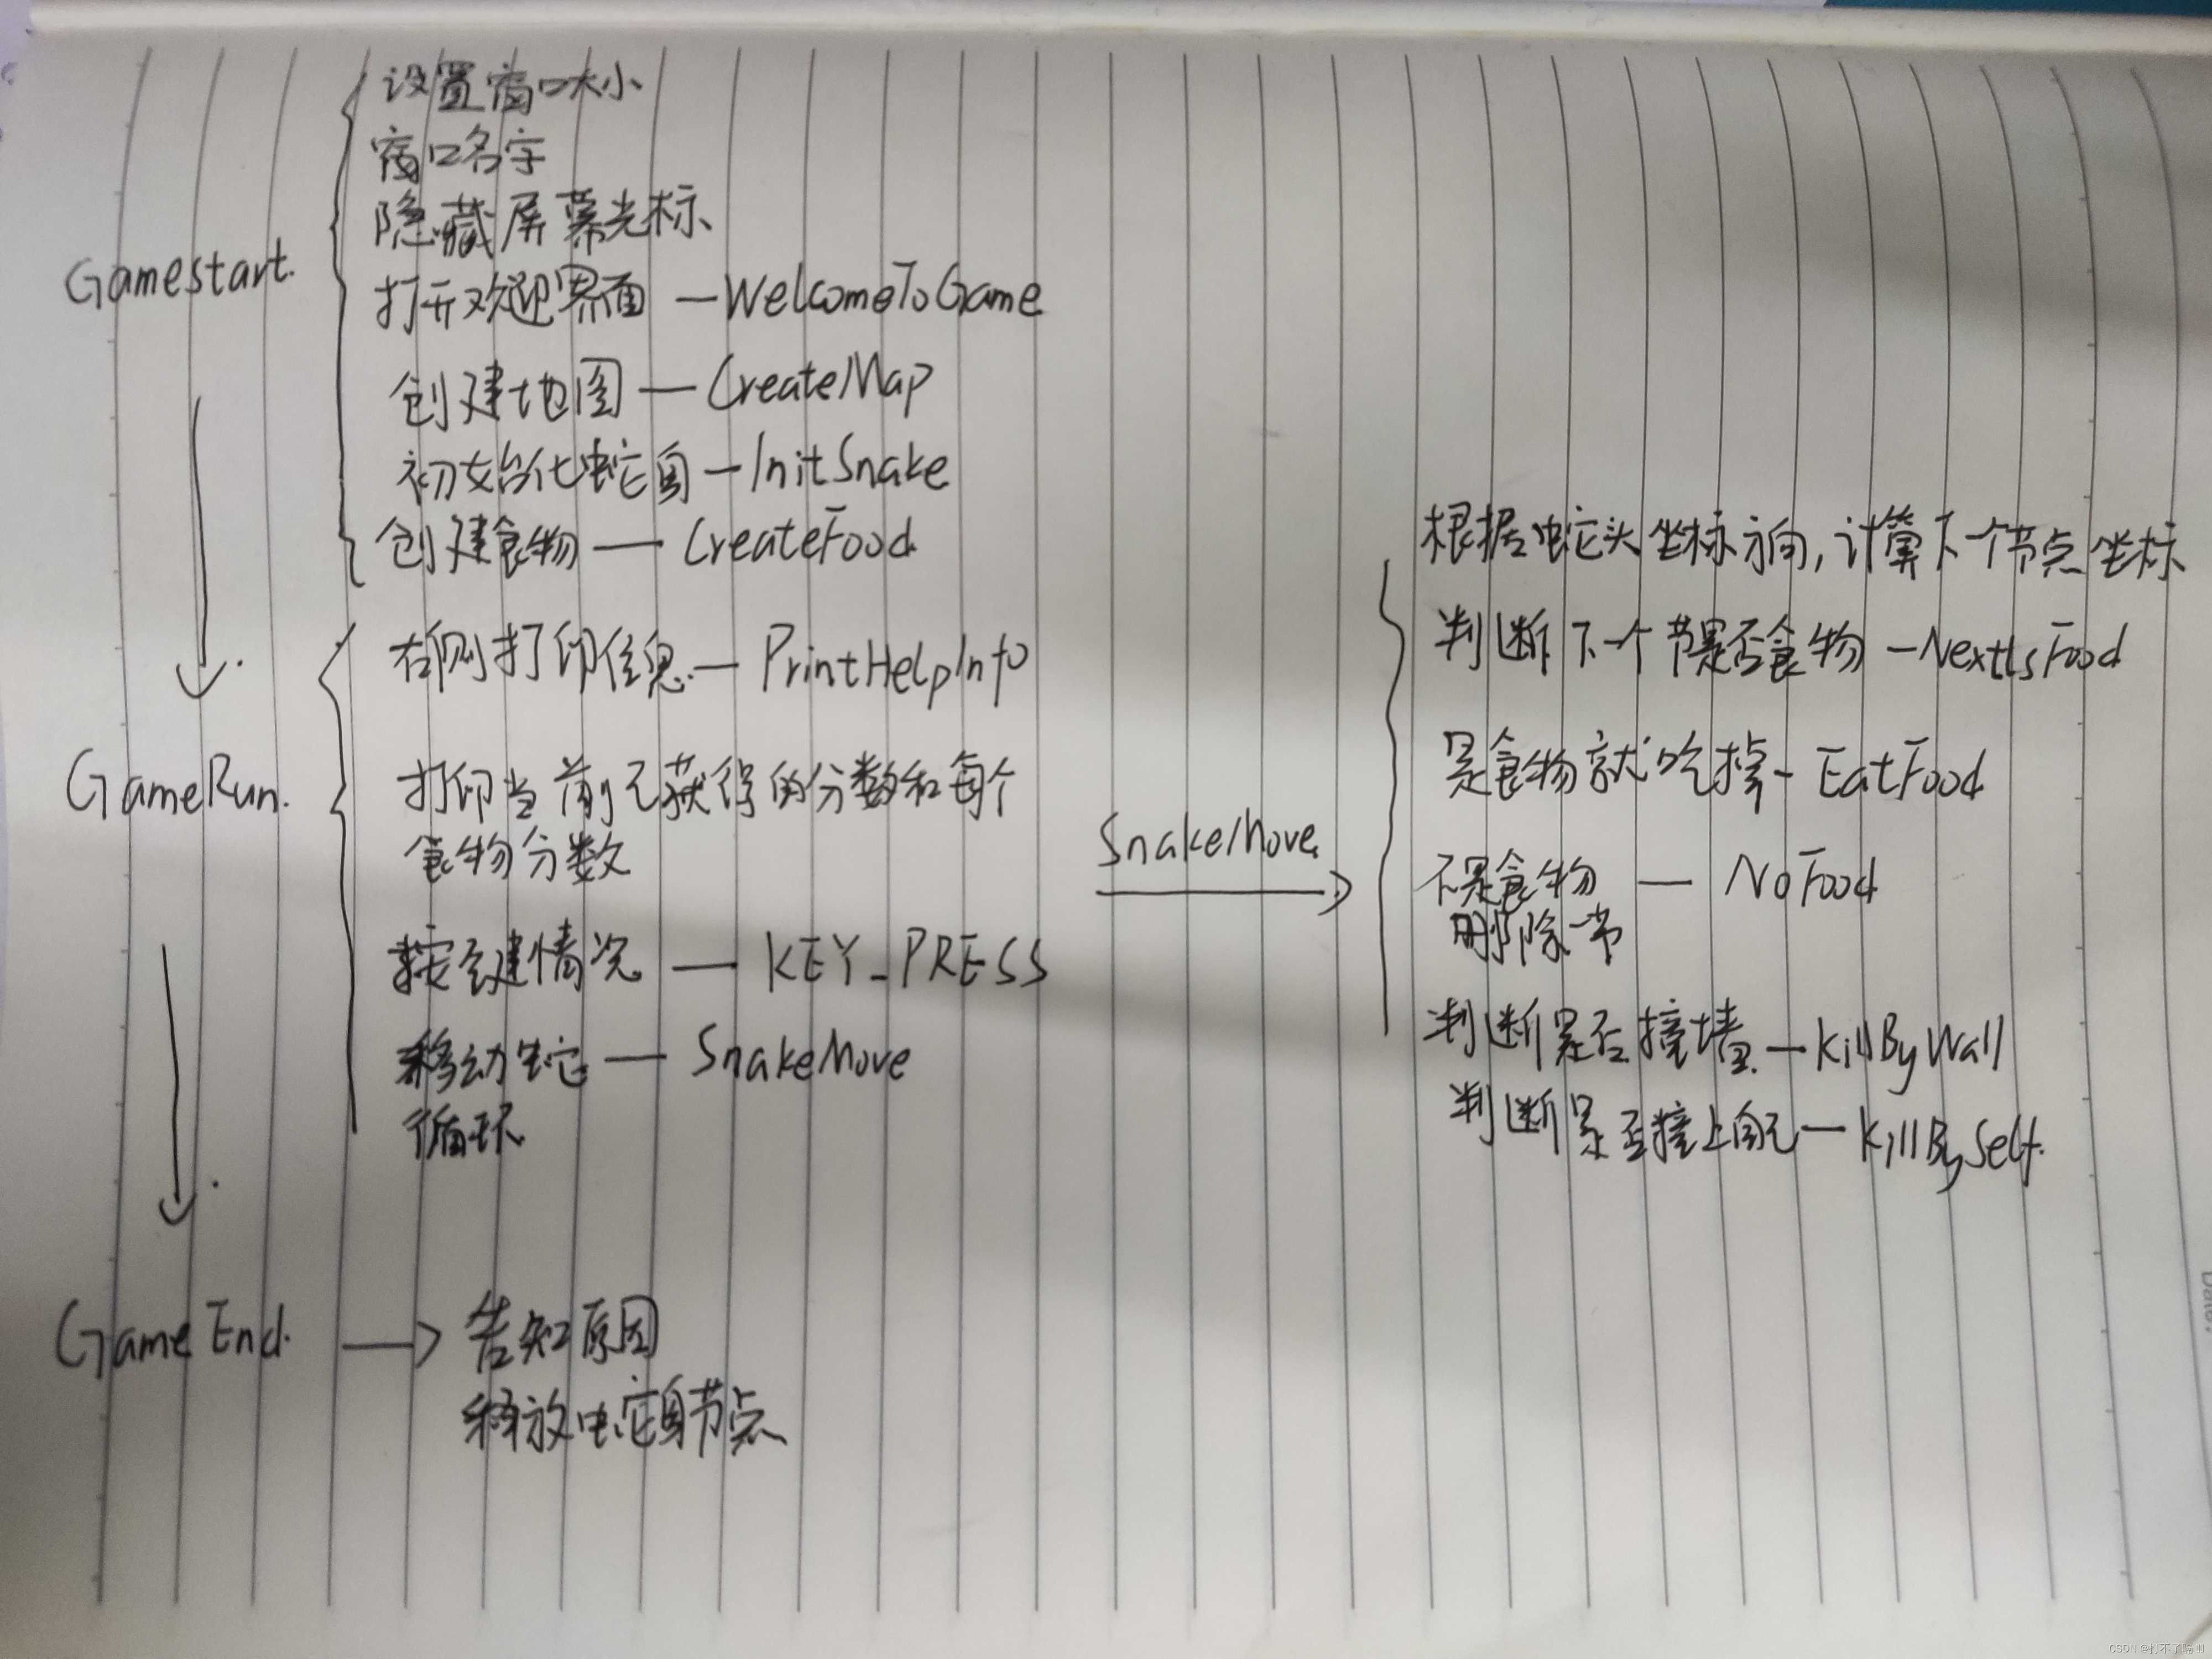 Gamestart.
设置窗口大小
窗口名字
隐藏屏幕光标
打开欢迎界面 — WelcomeToGame
创建地图 — CreateMap
初始化蛇身 — InitSnake
创建食物 — CreateFood
GameRun.
右侧打印信息 — PrintHelpInfo
打印当前已获得的分数和每个
食物分数
按键情况 — KEY_PRESS
移动蛇 — SnakeMove
循环
SnakeMove
根据蛇头坐标方向,计算下个节点坐标
判断下一个节是否食物 — NextIsFood
是食物就吃掉 — EatFood
不是食物 — NoFood
删除一节
判断是否撞墙 — KillByWall
判断是否撞上自己 — KillBySelf.
Game End.
告知原因
释放蛇身节点
Date: